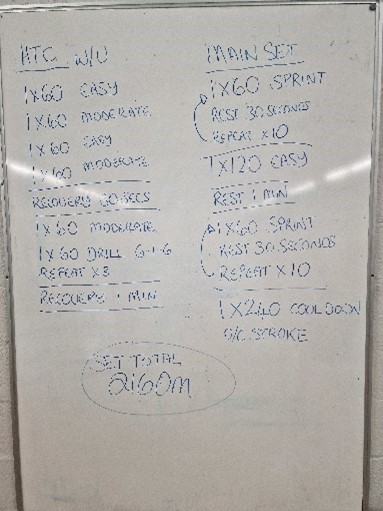 HTG W/U
1X60 EASY
1X60 MODERATE
1X60 EASY
1X60 MODERATE
RECOVERY 30 SECS
1X60 MODERATE
1X60 DRILL 6-1-6
REPEAT X3
RECOVERY 1 MIN
MAIN SET
1X60 SPRINT
REST 30 SECONDS
REPEAT X10
1X120 EASY
REST 1 MIN
1X60 SPRINT
REST 30 SECONDS
REPEAT X10
1X240 COOL DOWN
S/C STROKE
SET TOTAL
2160M